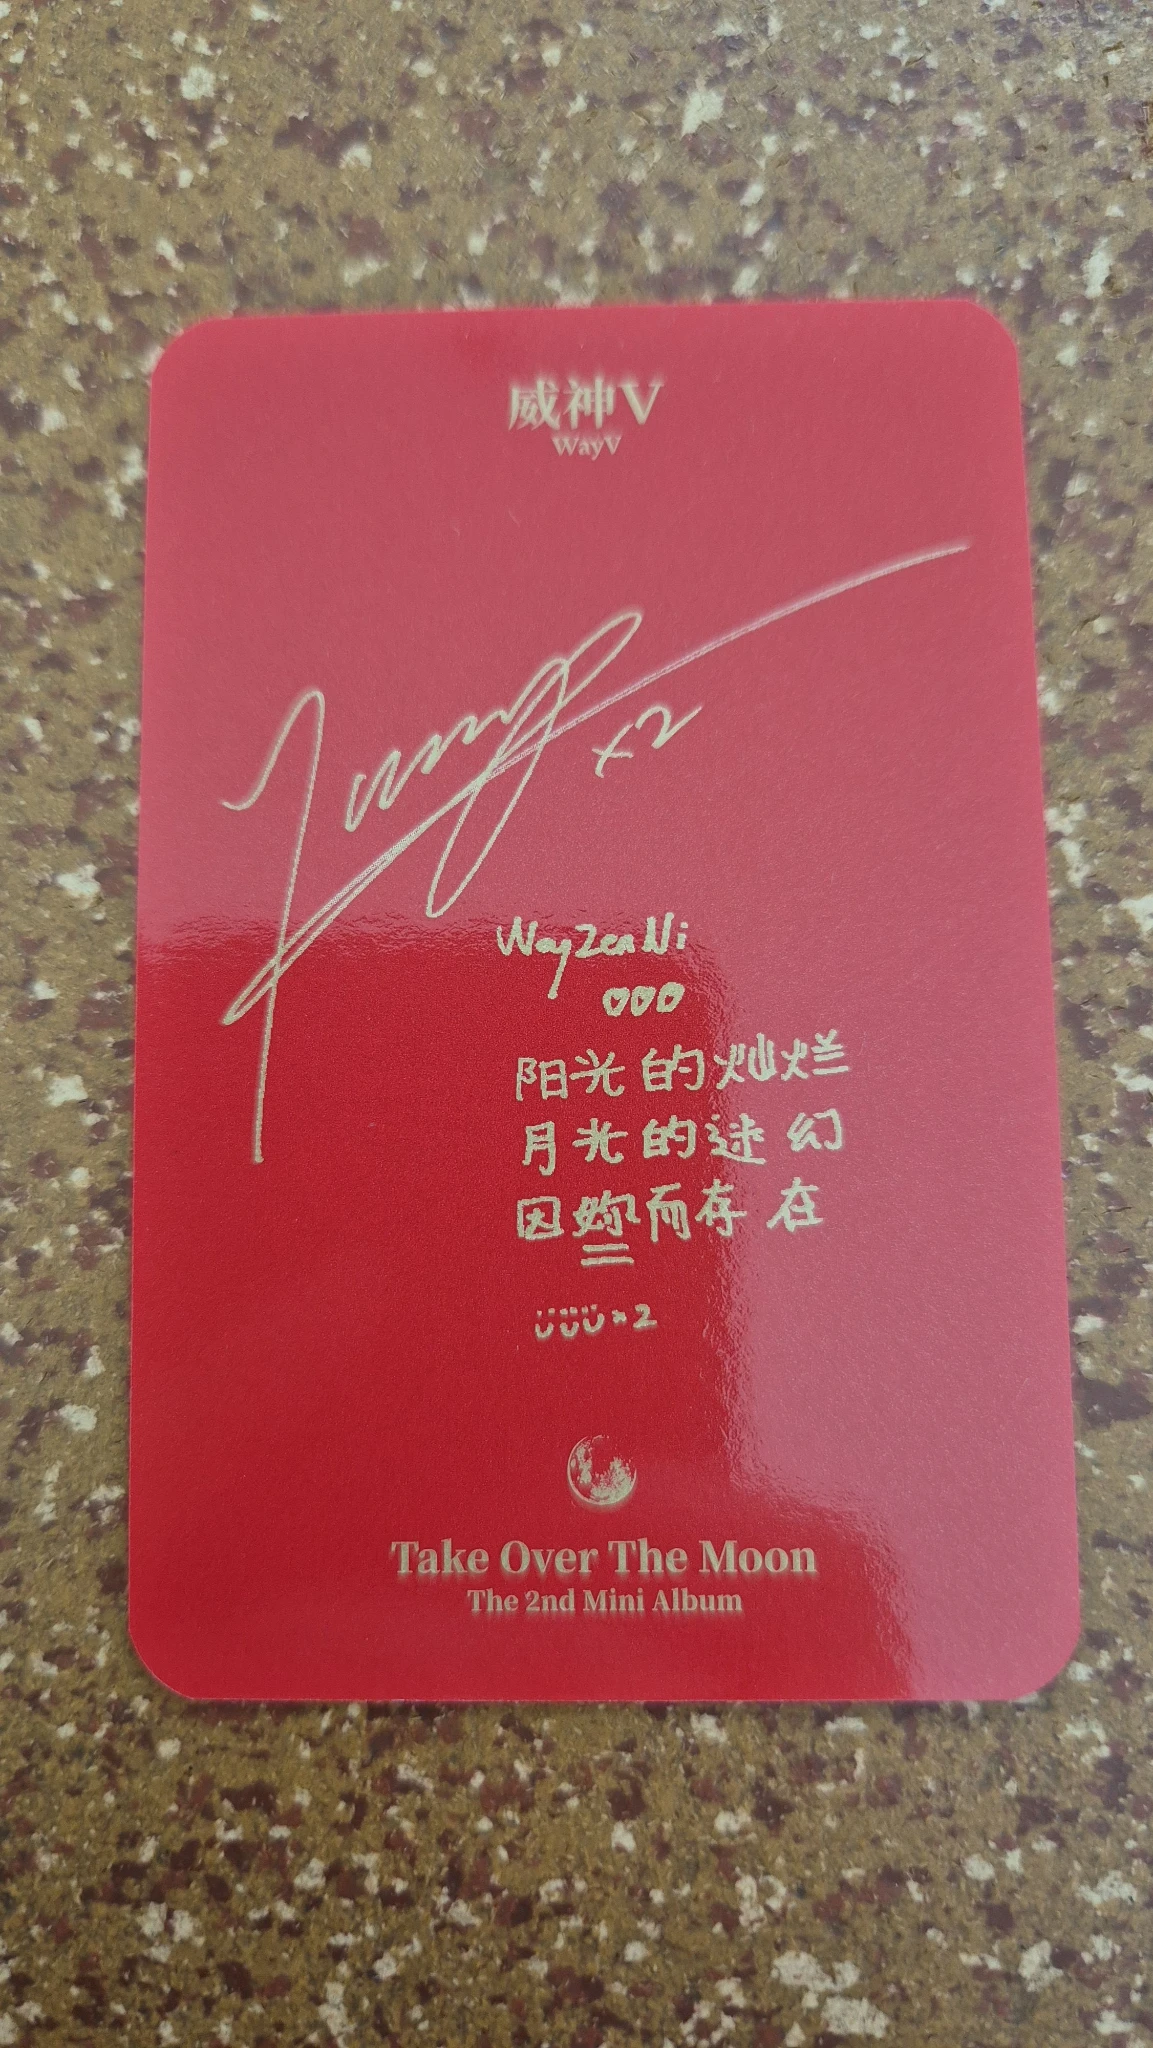 威神V
WayV
x2
WayZenNi
阳光的灿烂
月光的迷幻
因妳而存在
x2
Take Over The Moon
The 2nd Mini Album